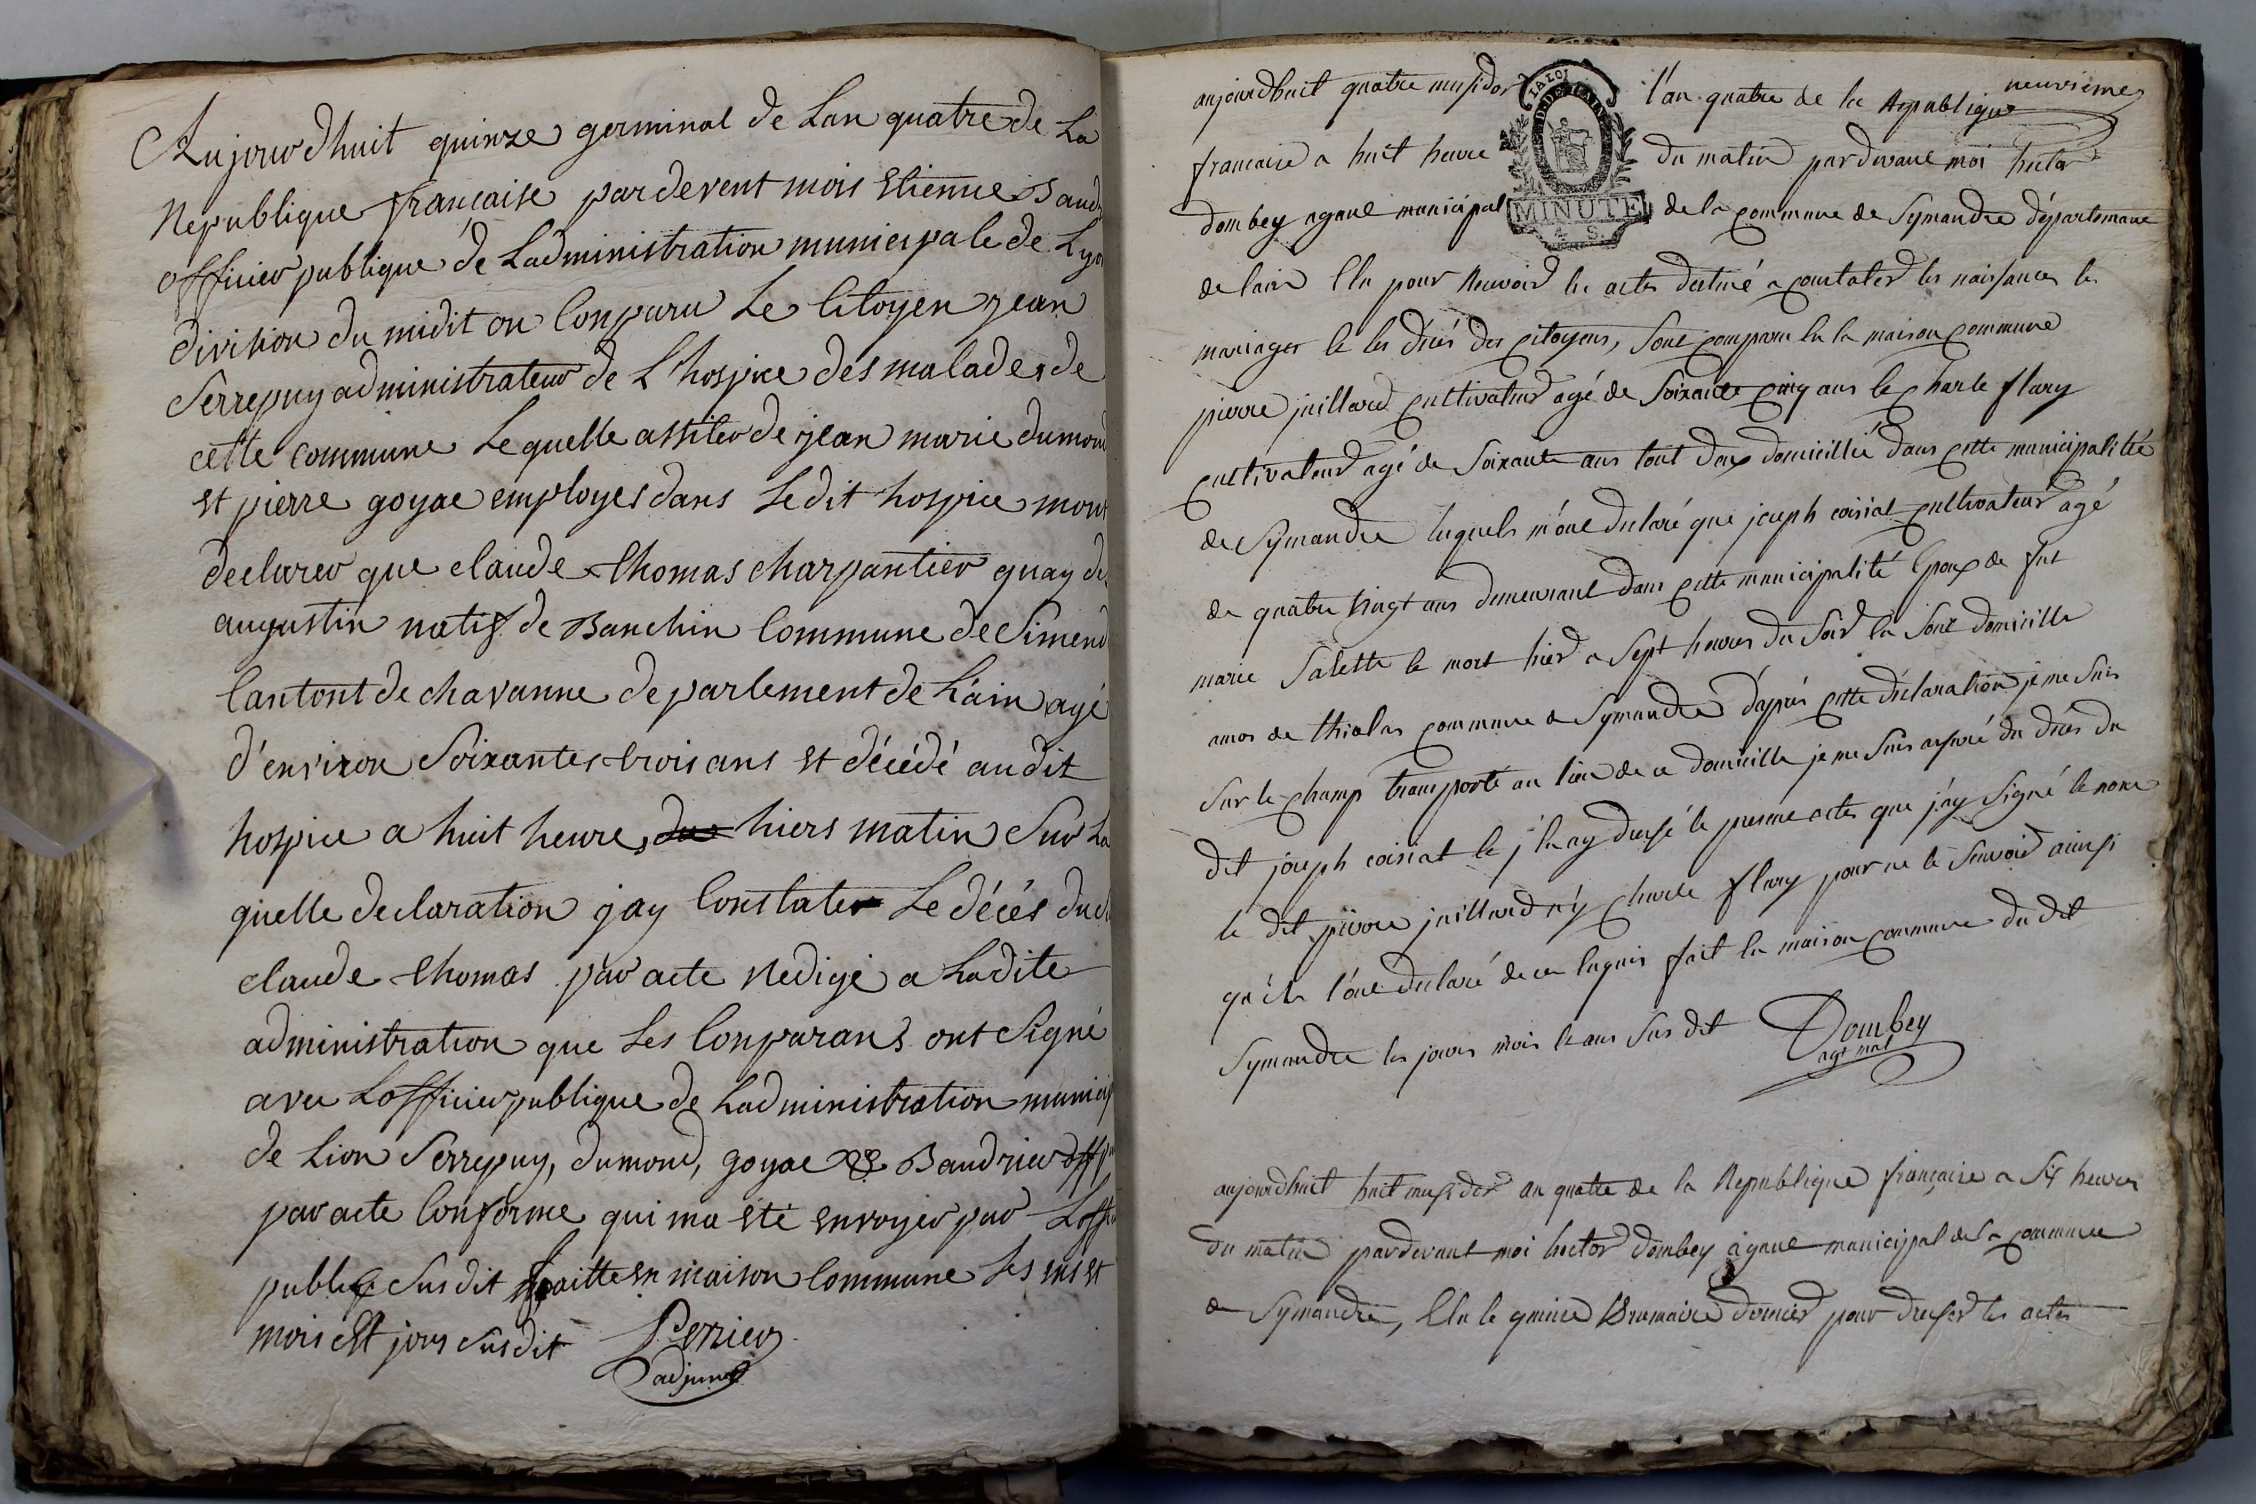 Aujourdhuit quinze germinal de Lan quatre de La
Republique française pardevent mois Etienne Baud
officier publique de Ladministration municipale de Lyo
division du midit on Conparu Le Citoyen jean
Serrepuy administrateur de L'hospice des malades de
cette commune Lequelle assiter de jean marie dumond
et pierre goyae employes dans Ledit hospice mont
declarer que claude thomas charpantier quay de
augustin natif de Banchin Commune de Simend
Cantont de chavanne departement de L'ain agé
d'environ Soixantes trois ans et décédé audit
hospice a huit heure hiers matin Sur La
quelle declaration jay Constater Le décés dud
claude thomas par acte Redigé a Ladite
administration que Les Conparans ont Signé
avec Lofficier publique de Ladministration municip
de Lion Serrepuy, dumond, goyae & Baudrier off
par acte Conforme qui ma été envoyer par Loffi
public Susdit faitte en maison Commune Les ens et
mois et jour Susdit Perrier
adjuno
neuvieme
aujourdhuit quatre musidor l'an quatre de la Republique
francaise a huit heure du matin pardevant moi hector
LA LOI
DEP. DE L'AIN
MINUTE
4 S.
dombey agant municipal de la commune de Symandre départemant
de lain Elu pour Recevoir les actes destiné a constater les naissances les
mariages et les décés des citoyens, Sont comparu en la maison commune
pierre juillard cultivateur agé de Soixante cinq ans et charle flury
cultivateur agé de Soixante ans tout deux domicillié dans cette municipalitée
de Symandre lequels m'ont declaré que joseph coisiat cultivateur agé
de quatre vingt ans demeurant dans cette municipalité Epoux de fut
marie Salette et mort hier a Sept heures du Soir en Sont domicille
amos de thiolas commune de Symandre d'après cette déclaration je me Suis
Sur le champ transporté au lieu de ce domicille je me Suis assuré du décés du
dit joseph coisiat et j'en ay dressé le presme actes que j'ay Signé et none
le dit pierre juillard n'y charle flury pour ne le Scavoir ainsi
qu'ils l'ont declaré de ce enquis fait en maison commune du dit
Symandre les jours mois et ans Sus dit Dombey
agt mal
aujourdhuit huit musidor an quatre de la Republique française a Six heures
du matin pardevant moi hector dombey agant municipal de la commune
de Symandre, Elu le quinze Brumaire dernier pour dresser les actes